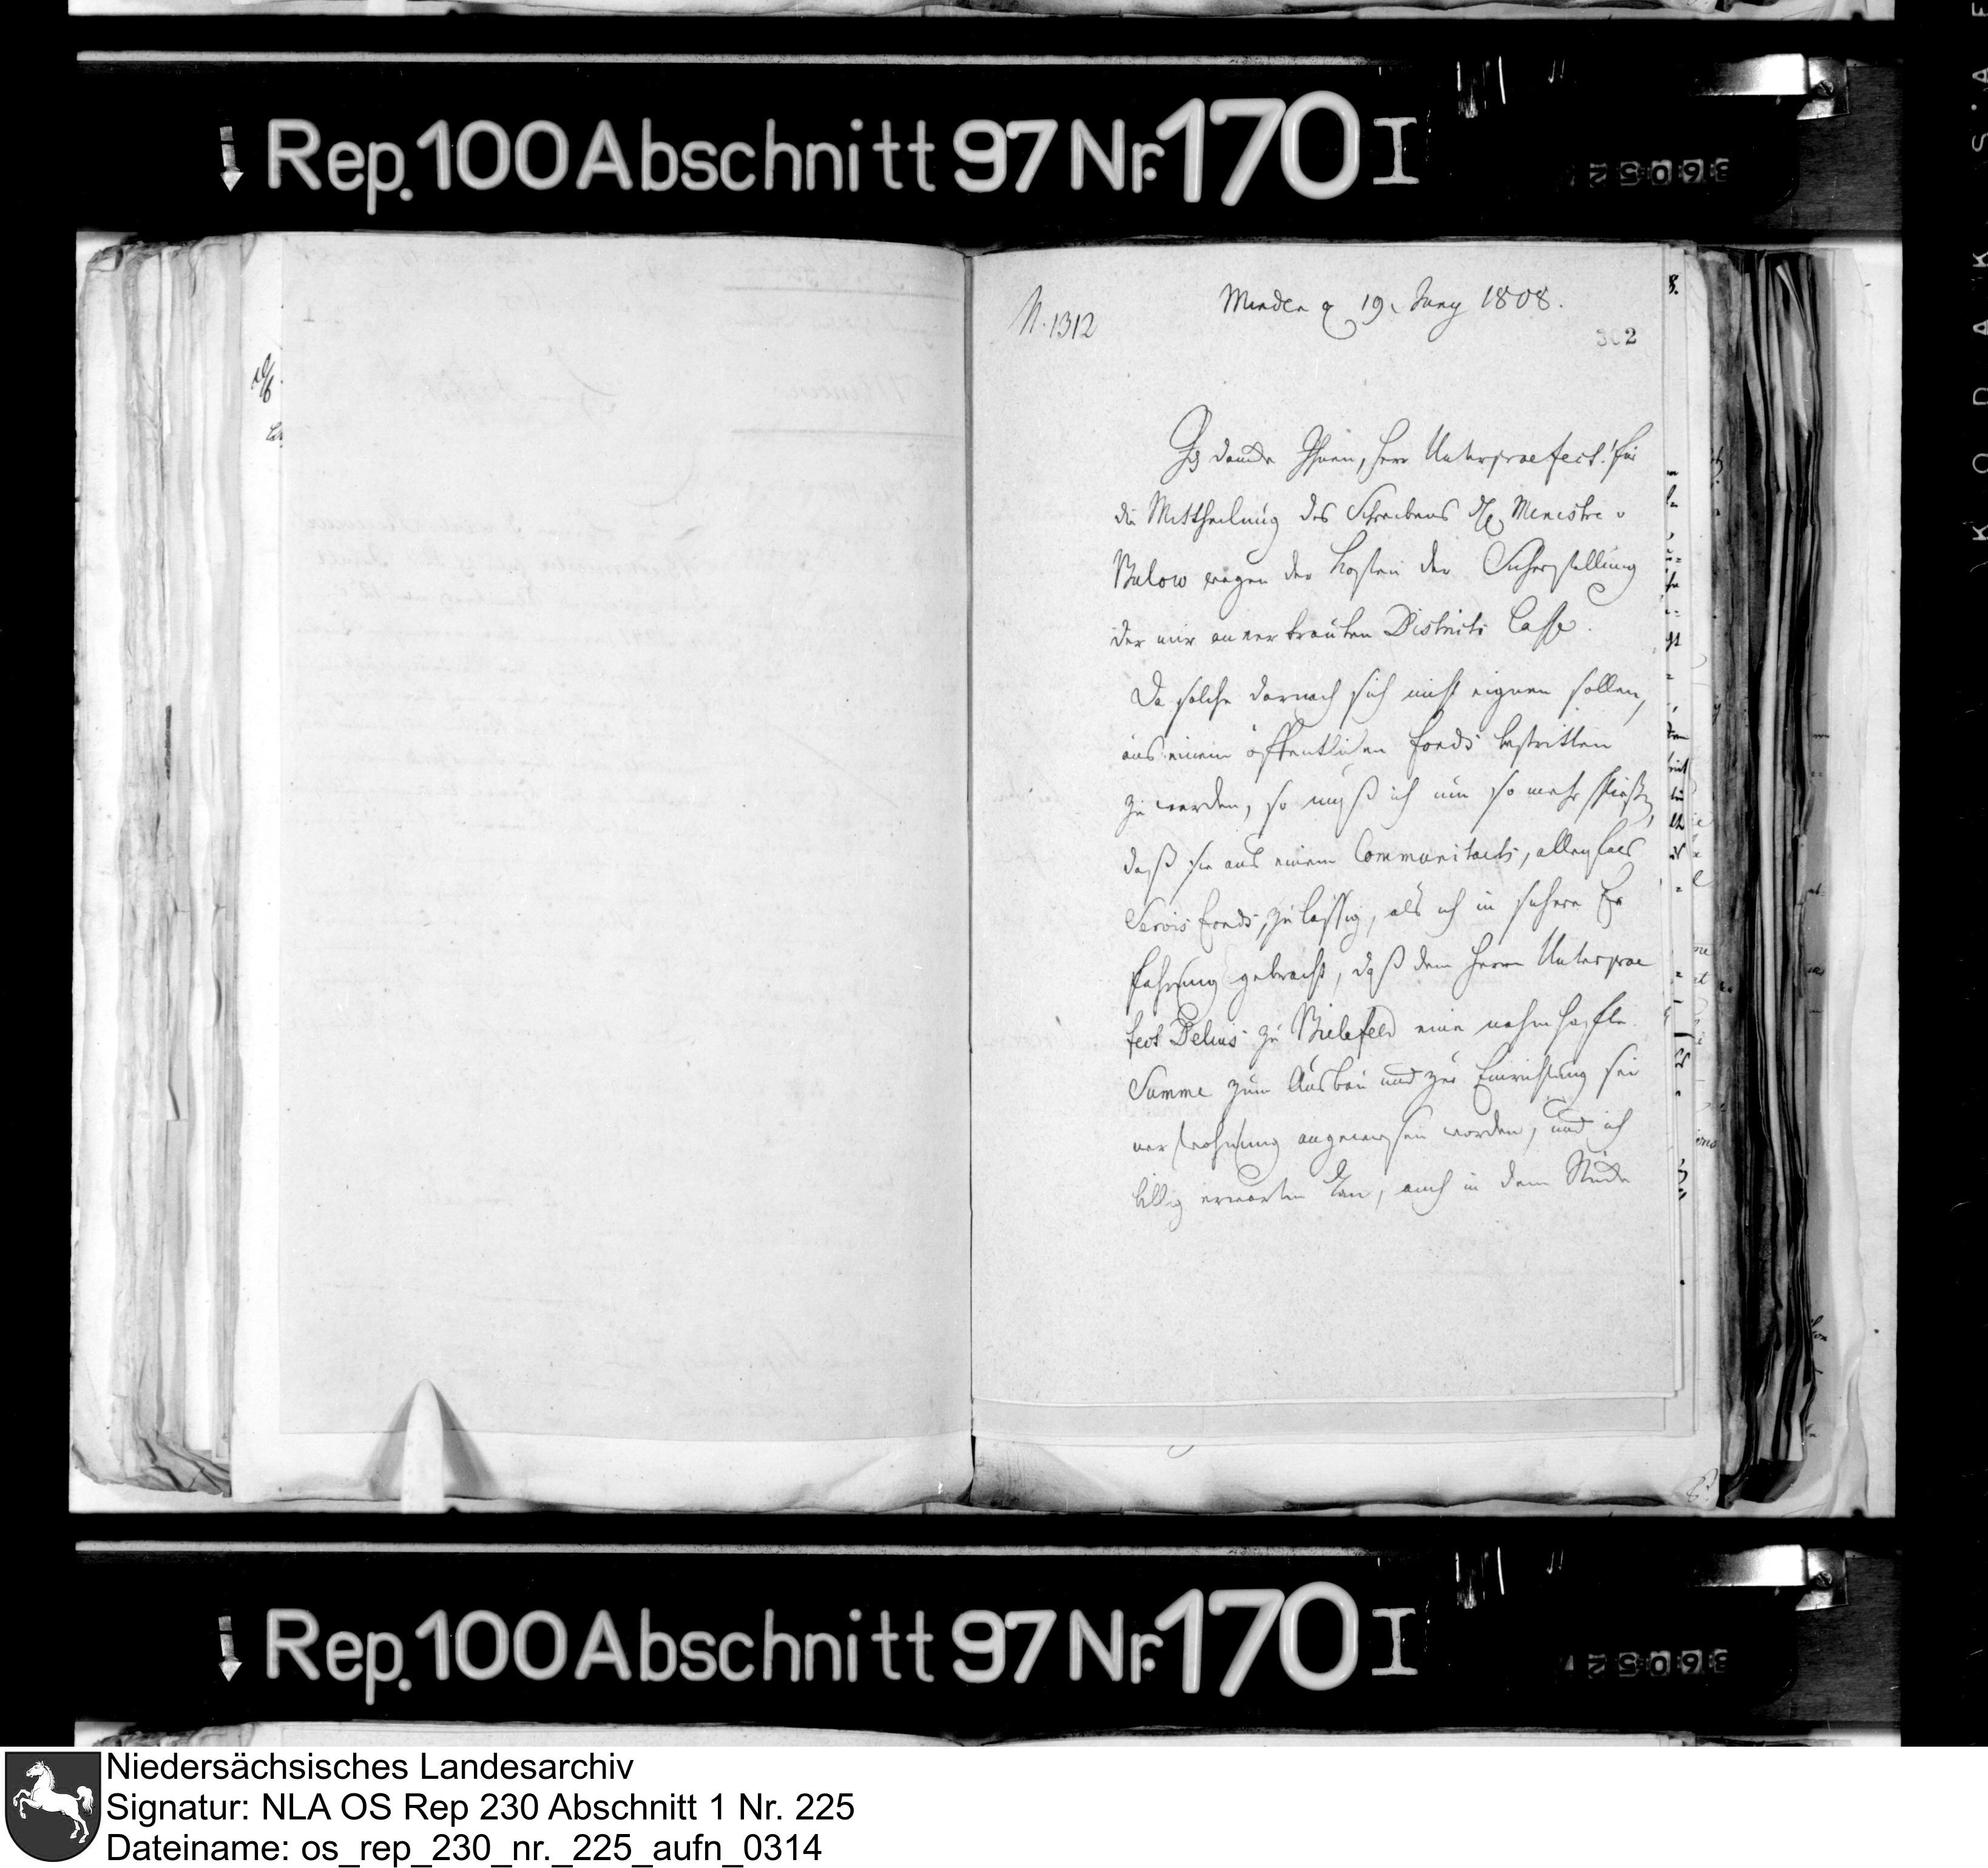 Rep. 100 Abschnitt 97 Nr. 170 I
36052
N. 1312
Minden d 19. Juny 1808.
302
Ich dancke Ihnen, Herr Unterpraefect! für
die Mittheilung des Schreibens des Ministre v
Bulow wegen der Kosten der Sicherstellung
der mir anvertrauten Districts Casse.
Da solche darnach sich nicht eignen sollen,
aus einem öffentlichen Fonds bestritten
zu werden, so muß ich um so mehr
daß sie aus einem Communitaets, allenfals
Servis Fonds, zulässig, als ich in sichere Er
fahrung gebracht, daß dem Herrn Unterprae
fect Delius zu Bielefeld eine nahmhafte
Summe zum Ausbau und zur Einrichtung sei
ner Wohnung angewiesen worden, und ich
billig erwarten kan, auch in dem Stücke
Rep. 100 Abschnitt 97 Nr. 170 I
36052
Niedersächsisches Landesarchiv
Signatur: NLA OS Rep 230 Abschnitt 1 Nr. 225
Dateiname: os_rep_230_nr._225_aufn_0314